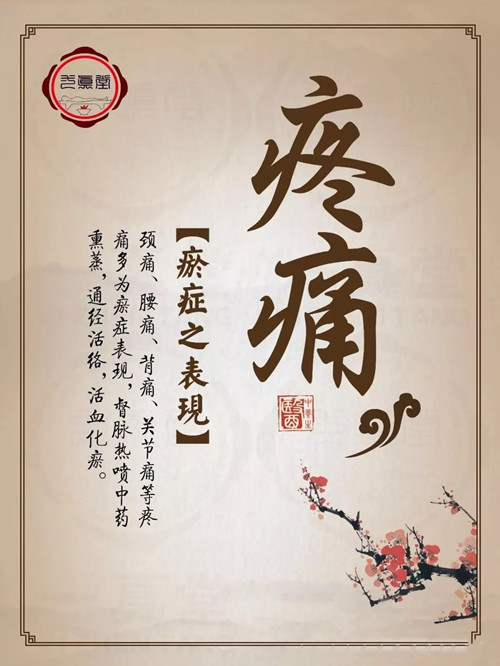 疼痛
【瘀症之表現】
颈痛、腰痛、背痛、关节痛等疼
痛多为瘀症表现，督脉热喷中药
熏蒸，通经活络，活血化瘀。